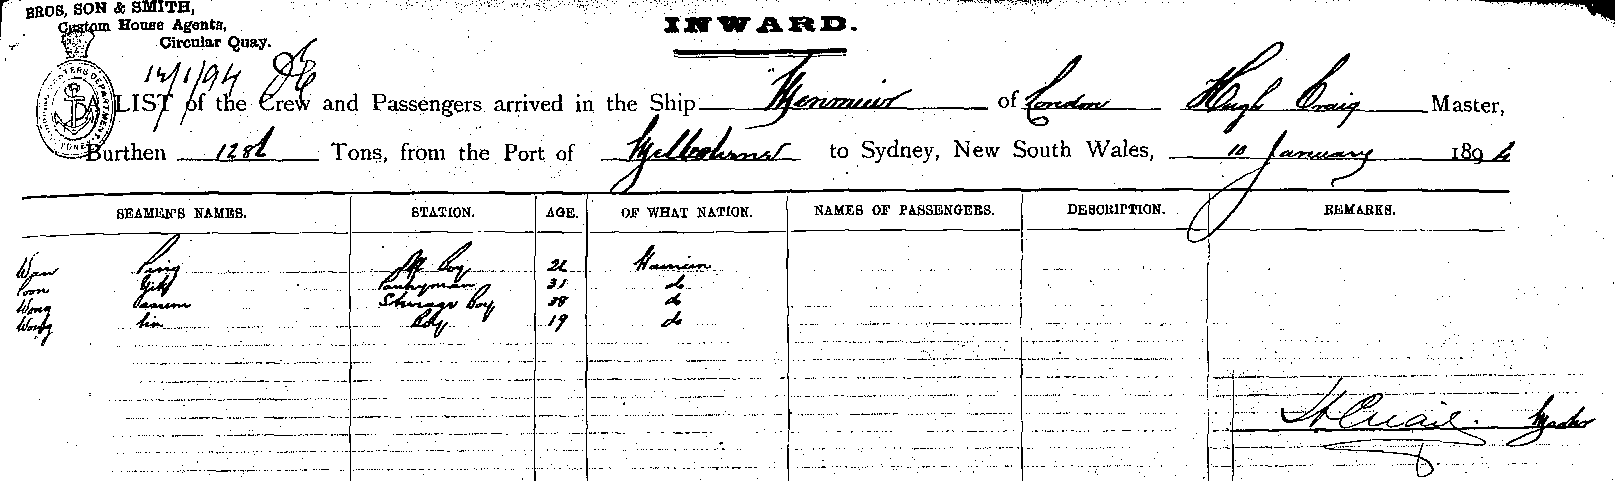 BROS, SON & SMITH,
Custom House Agents,
Circular Quay.
INWARD.
12/1/94
A LIST of the Crew and Passengers arrived in the Ship Menmuir of London Hugh Craig Master,
Burthen Tons, from the Port of Melbourne to Sydney, New South Wales, 10 January 1894
SEAMEN'S NAMES. STATION. AGE. OF WHAT NATION. NAMES OF PASSENGERS. DESCRIPTION. REMARKS.
Ping Boy Hainan
Poon Pantryman do
Wong Boy do
Wong Boy 19 do
H Craig. Master